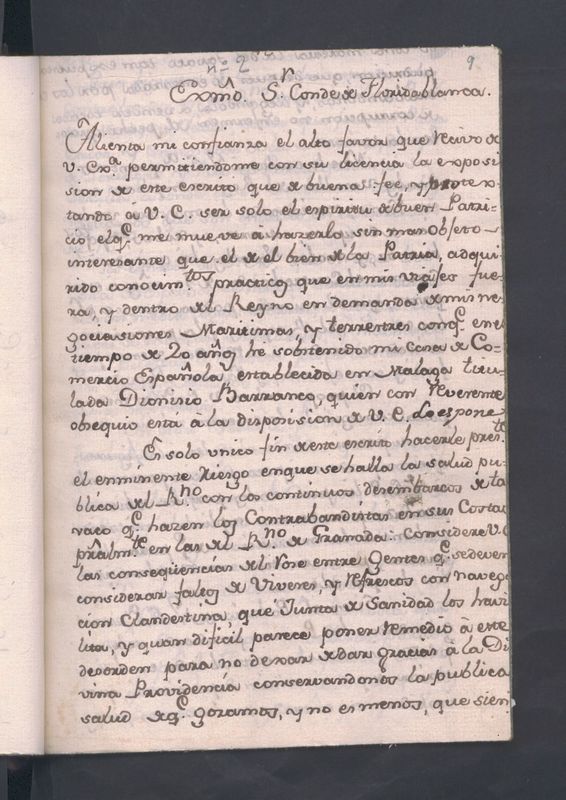 nº 2º
9
Exmo. Sr. Conde de Floridablanca.
Alienta mi confianza el alto favor que recivo de
V. Exa. permitiendome con su licencia la exposi-
sion de este escrito que de buena fee, y protex-
tando à V. E. ser solo el espiritu de buen Patri-
cio elqe. me mueve à hazerlo sin mas Objeto
interesante que el de el bien de la Patria, adqui-
rido conocimtos. practicos que en mis viajes fue-
ra, y dentro del Reyno en demanda de mis ne-
gociasiones Maritimas y terrestres conqe. en el
tiempo de 20 años he sobstenido mi casa de Co-
mercio Española establecida en Malaga titu-
lada Dionisio Barranco, quien con reverente
obsequio está à la disposision de V. E. lo espone
Es solo unico fin de este escrito hacerle preste.
el enminente riesgo enque se halla la salud pu-
blica del Rno. con los continuos desembarcos de ta-
vaco qe. hazen los Contrabandistas en sus Costas
pralmte. en las del Rno. de Granada. Considere V. E.
las conseqüencias del Rose entre gentes qe. se deven
considerar faltos de Viveres, y refrescos con navega
cion Clandestina que Junta de Sanidad los havi
lita, y quan dificil parece poner remedio à este
desorden para no dexar de dar gracias à la Di
vina Providencia conservandonos la publica
salud de qe. gozamos, y no es menos, que sien